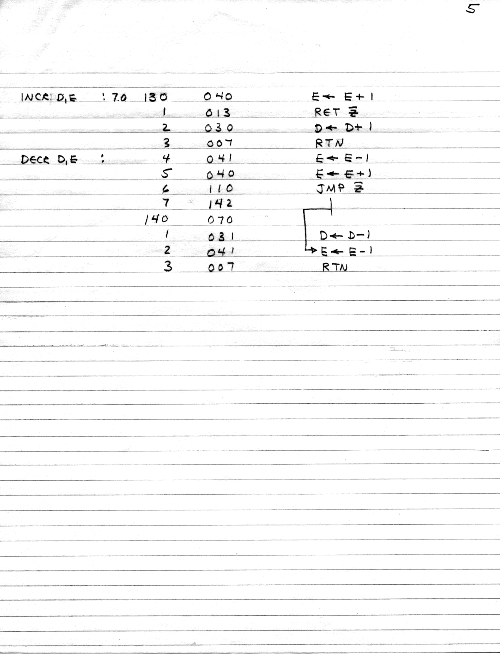 5
INCR D,E : 7.0 130 040 E ← E+1
1 013 RET Z̅
2 030 D ← D+1
3 007 RTN
DECR D,E : 4 041 E ← E-1
5 040 E ← E+1
6 110 JMP Z̅
7 142
140 070
1 031 D ← D-1
2 041 E ← E-1
3 007 RTN